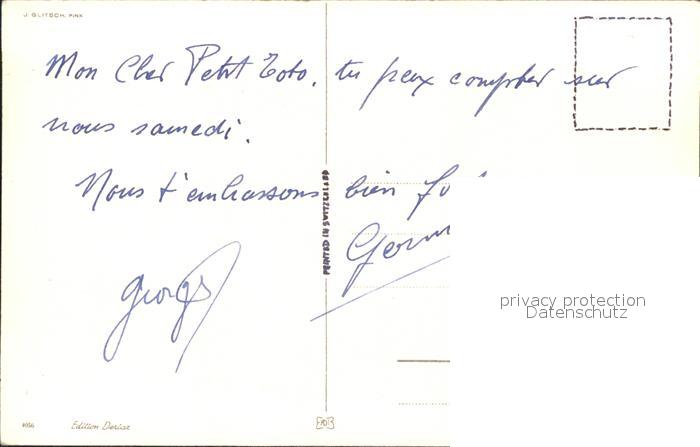 J. GLITSCH, PINX
Mon Cher Petit Toto, tu peux compter sur
nous samedi.
Nous t'embrassons bien
Georges
PRINTED IN SWITZERLAND
privacy protection
Datenschutz
4056 Edition Deriaz